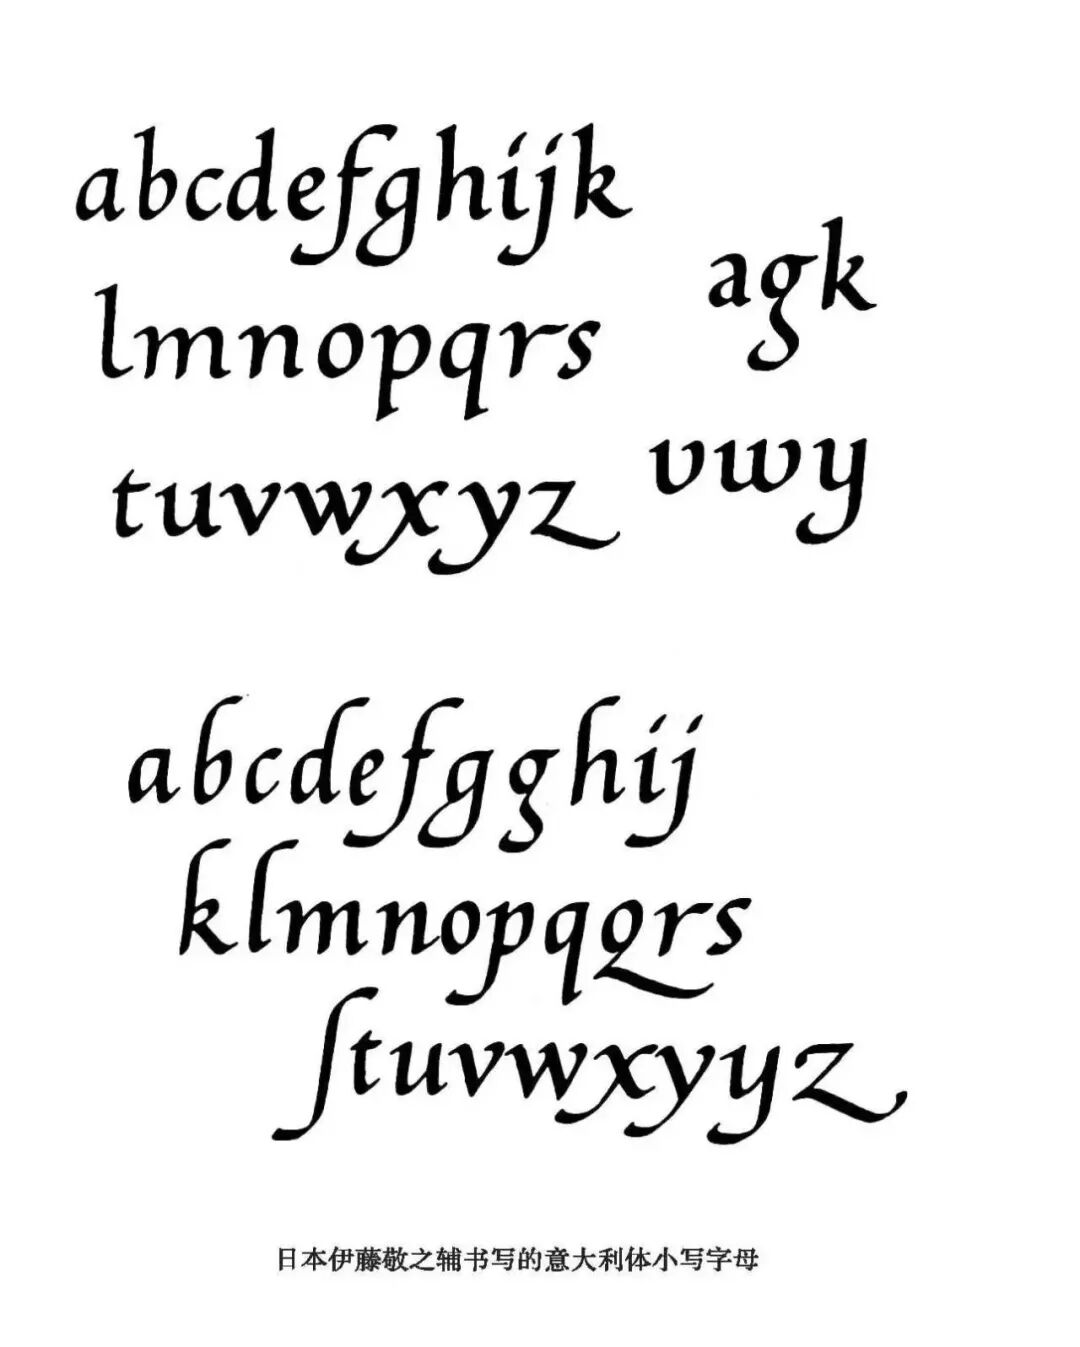 abcdefghijk
agk
lmnopqrs
vwy
tuvwxyz
abcdefgghij
klmnopqqrs
ſtuvwxyyz
日本伊藤敬之辅书写的意大利体小写字母